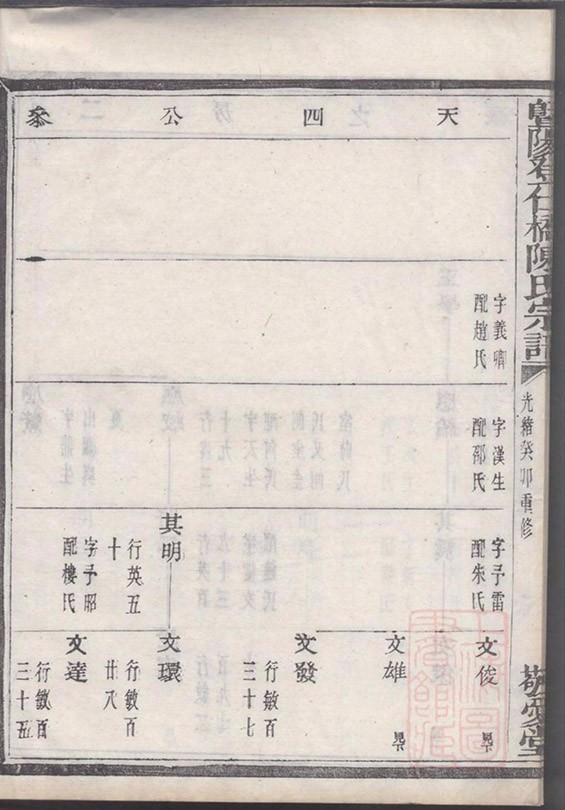 暨陽登仕橋陳氏宗譜
光緒癸卯重修
敬愛堂
天四公叅
字義卿
配趙氏
字漢生
配邵氏
字予雷
配朱氏
文俊
文雄
文發
行敏百
三十七
其明
行英五
十
文環
行敏百
廿八
字予昭
配樓氏
文達
行敏百
三十五